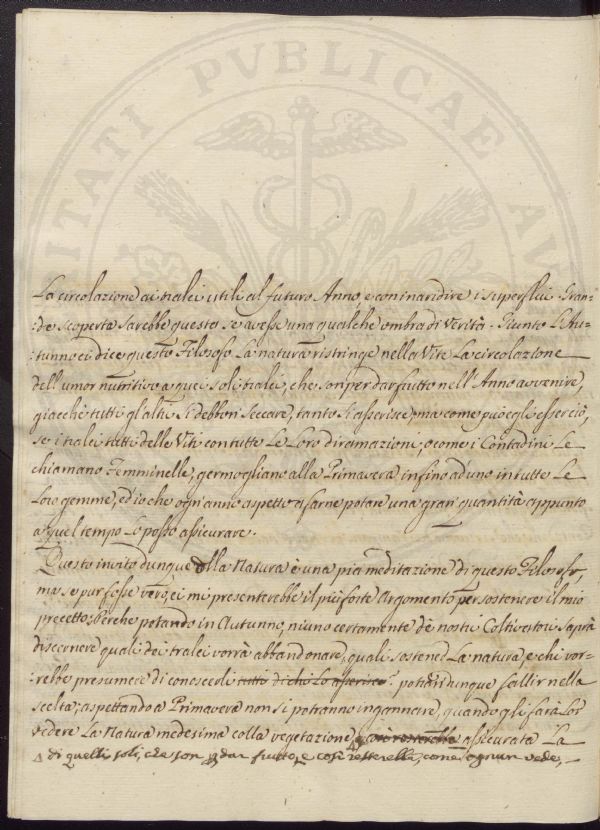 PVBLICAE
La circolazione ai tralci utili al futuro Anno, e con inaridire i superflui. Gran=
=de scoperta sarebbe questa se avesse una qualche ombra di verità. Giunto L'Au=
tunno ei dice questo Filosofo La natura ristringe nella Vite La circolazione
dell'umor nutritivo a quei soli tralci, che son per dar frutto nell'Anno avvenire,
giacchè tutti gl'altri si debbon seccare, tanto si asserisce, ma come può egli esser ciò,
se i tralci tutti delle Viti con tutte Le Loro diramazioni, o come i Contadini Le
chiamano Femminelle, germogliano alla Primavera infino ad uno in tutte Le
Loro gemme, ed io che ogn'anno aspetto a farne potare una gran quantità appunto
a quel tempo Lo posso assicurare.
Questo invito dunque alla Natura è una pia meditazione di questo Filosofo,
ma se pur fosse vero, ei mi presenterebbe il più forte Argomento per sostenere il mio
precetto: Perche potando in Autunno, niuno certamente de nostri Coltivatori saprà
discernere quali dei tralci vorrà abbandonare, quali sostener La natura, e chi vor=
=rebbe presumere di conoscerli tutto di chi Lo asserisce? potrà dunque fallir nella
scelta; aspettando a Primavera non si potranno ingannare, quando gli farà Lor
vedere La Natura medesima colla vegetazione assicurata La
di quelli soli, che son p dar frutto, e così resterelle, come ognun vede,